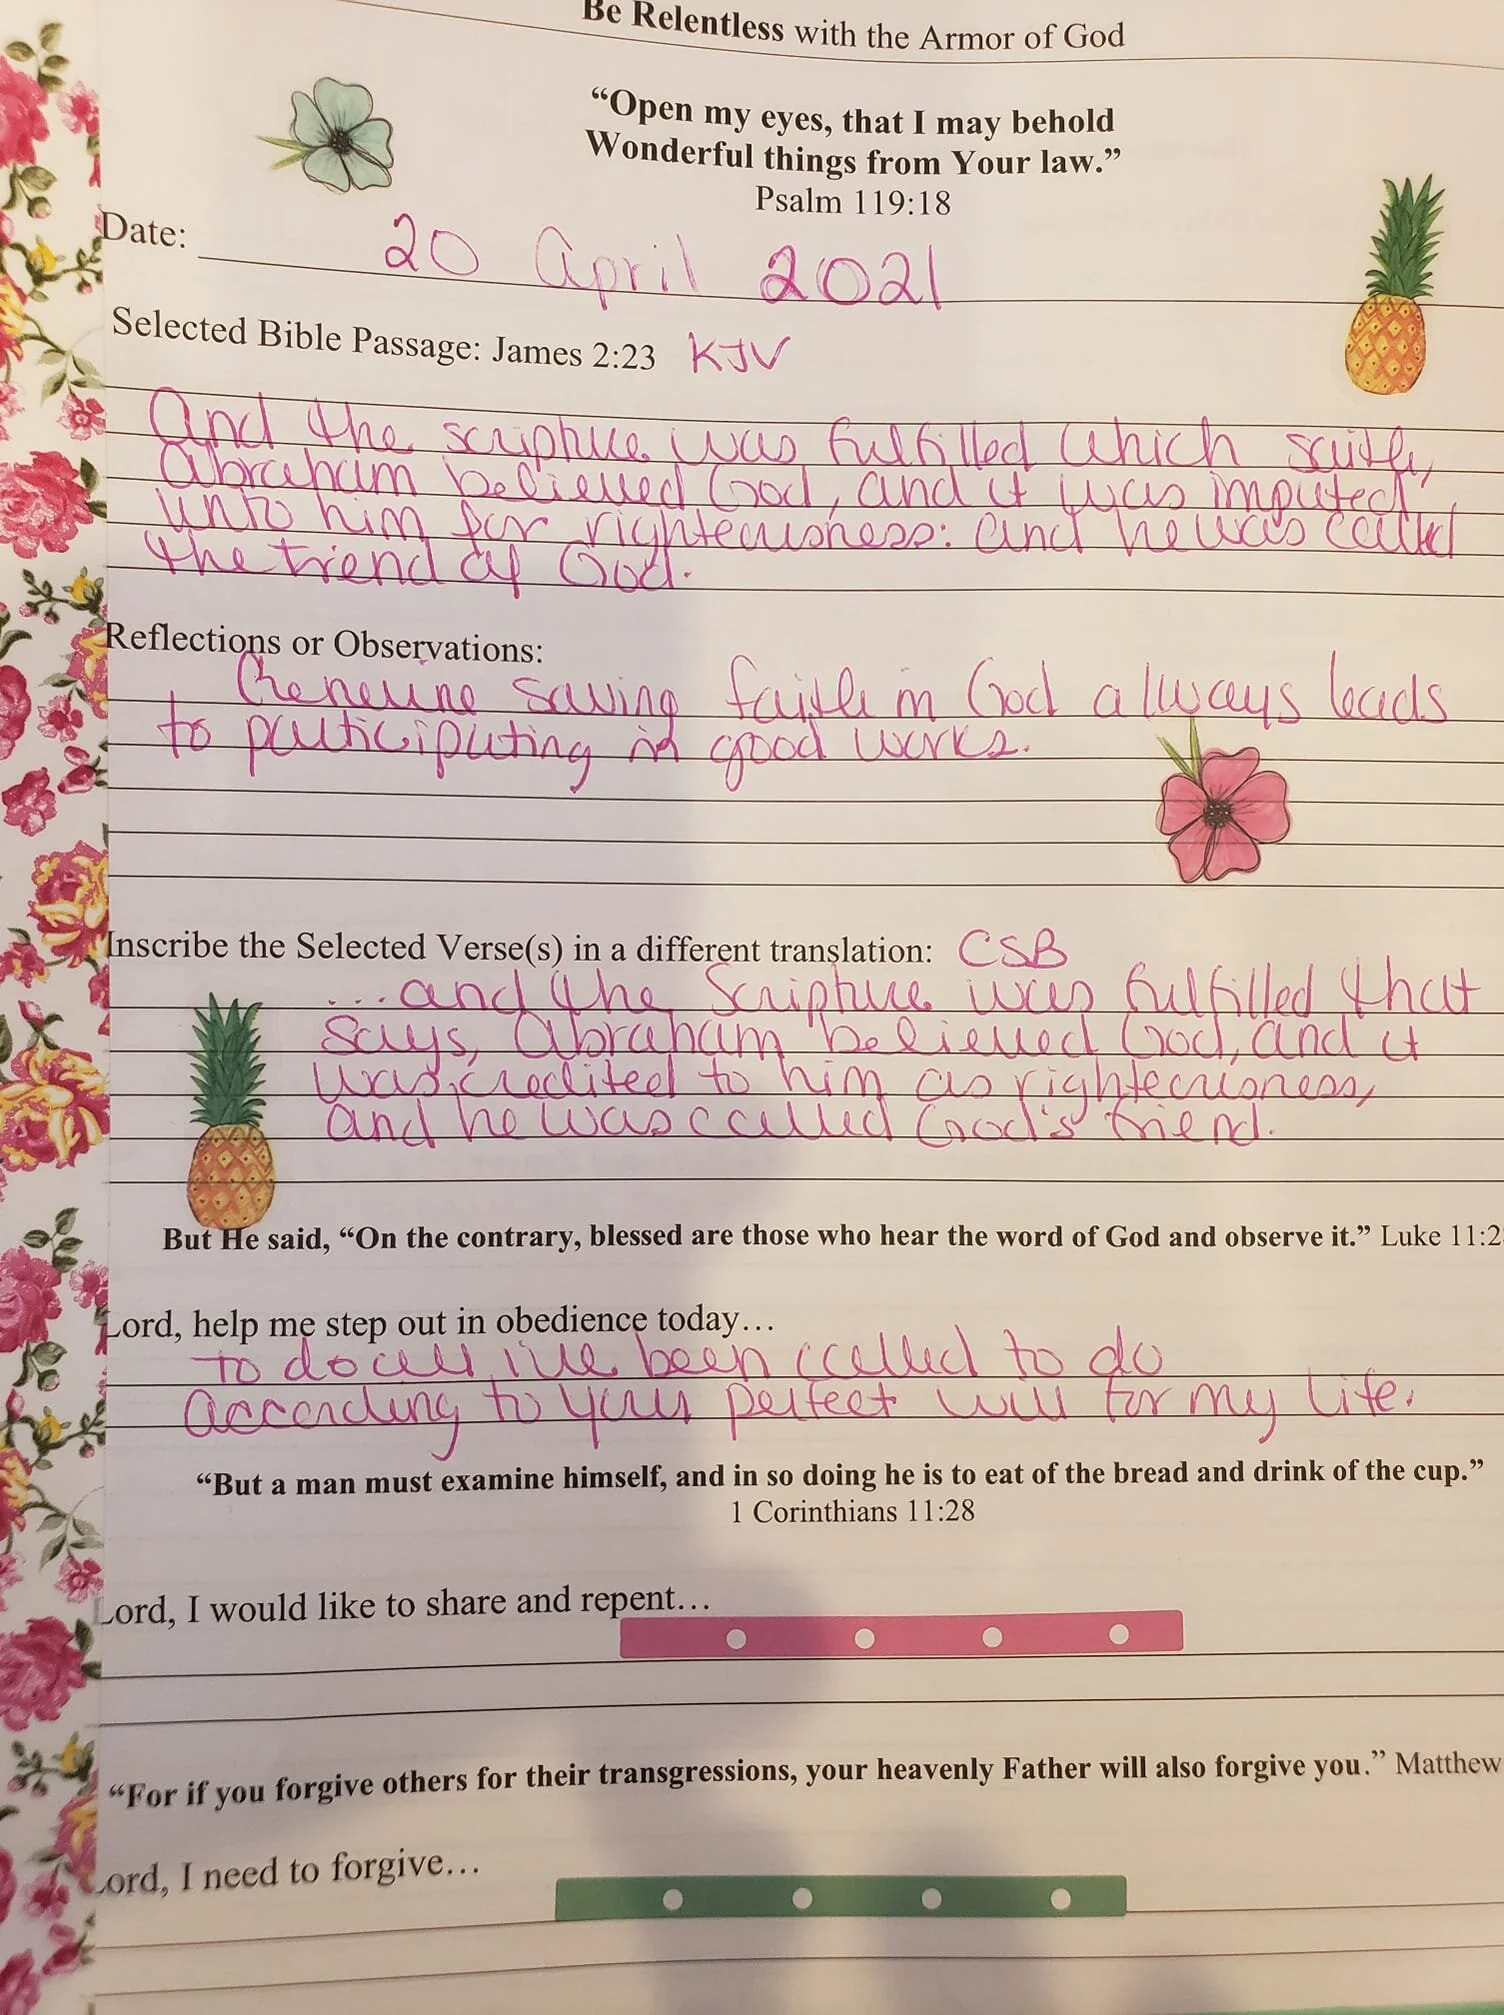 Be Relentless with the Armor of God
“Open my eyes, that I may behold
Wonderful things from Your law.”
Psalm 119:18
Date: 20 April 2021
Selected Bible Passage: James 2:23 KJV
And the scripture was fulfilled which saith,
Abraham believed God, and it was imputed
unto him for righteousness: and he was called
the friend of God.
Reflections or Observations:
Geneuine saving faith in God always leads
to participating in good works.
Inscribe the Selected Verse(s) in a different translation: CSB
...and the Scripture was fulfilled that
says, Abraham believed God, and it
was credited to him as righteousness,
and he was called God's friend.
But He said, “On the contrary, blessed are those who hear the word of God and observe it.” Luke 11:2
Lord, help me step out in obedience today…
to do all I've been called to do
according to your perfect will for my life.
“But a man must examine himself, and in so doing he is to eat of the bread and drink of the cup.”
1 Corinthians 11:28
Lord, I would like to share and repent…
“For if you forgive others for their transgressions, your heavenly Father will also forgive you.” Matthew
Lord, I need to forgive…